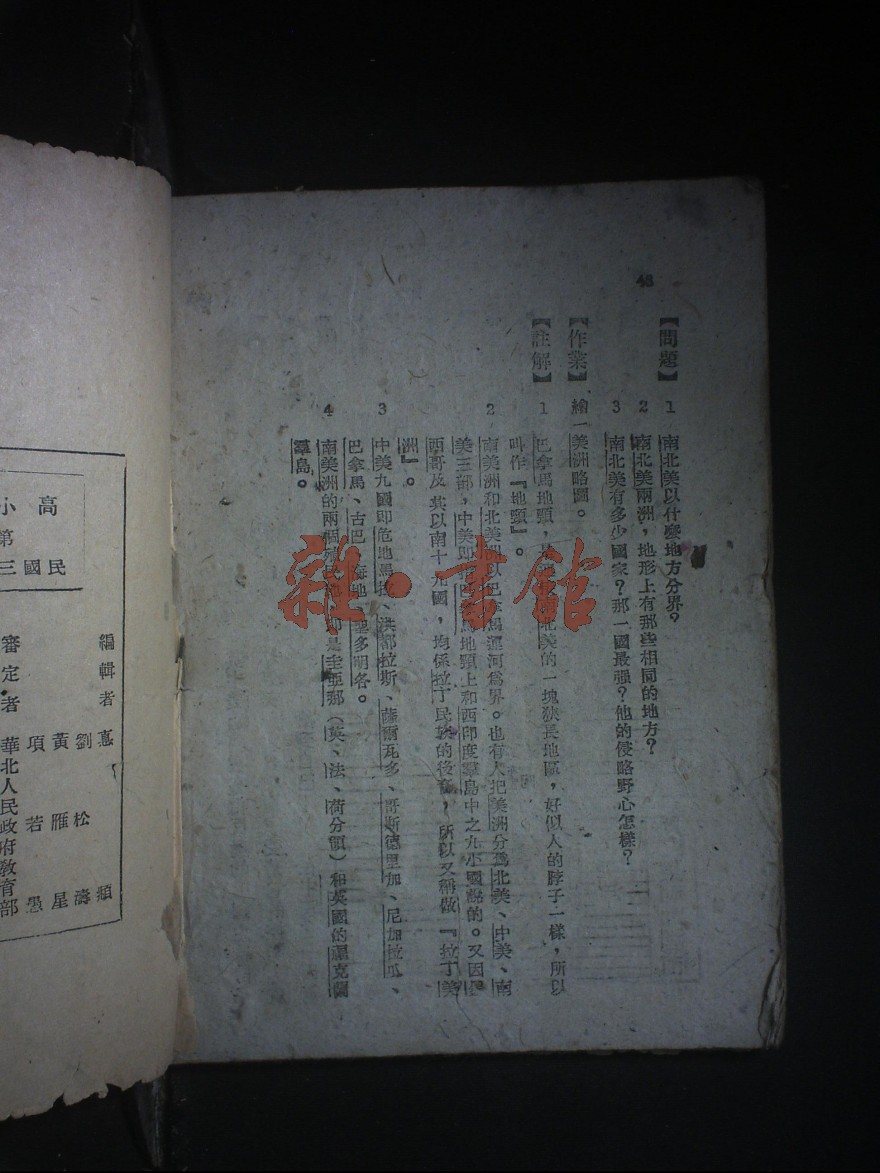 48
【問題】 1 南北美以什麼地方分界?
2 南北美兩洲,地形上有那些相同的地方?
3 南北美有多少國家?那一國最强?他的侵略野心怎樣?
【作業】 繪一美洲略圖。
【註解】 1 巴拿馬地頸,北美的一塊狹長地區,好似人的脖子一樣,所以
叫作『地頸』。
2 南美洲和北美洲以巴拿馬運河爲界。也有人把美洲分爲北美、中美、南
美三部,中美即指巴拿馬地頸上和西印度羣島中之九小國說的。又因墨
西哥及其以南十九國,均係拉丁民族的後裔,所以又稱做『拉丁美
洲』。
3 中美九國即危地馬拉、洪都拉斯、薩爾瓦多、哥斯德里加、尼加拉瓜、
巴拿馬、古巴、海地、聖多明各。
4 南美洲的兩個殖民地即是圭亞那(英、法、荷分領)和英國的福克蘭
羣島。
雜·書館
高小
第
民國三
編輯者 惠頻
劉松濤
黃雁星
項若愚
審定者 華北人民政府敎育部